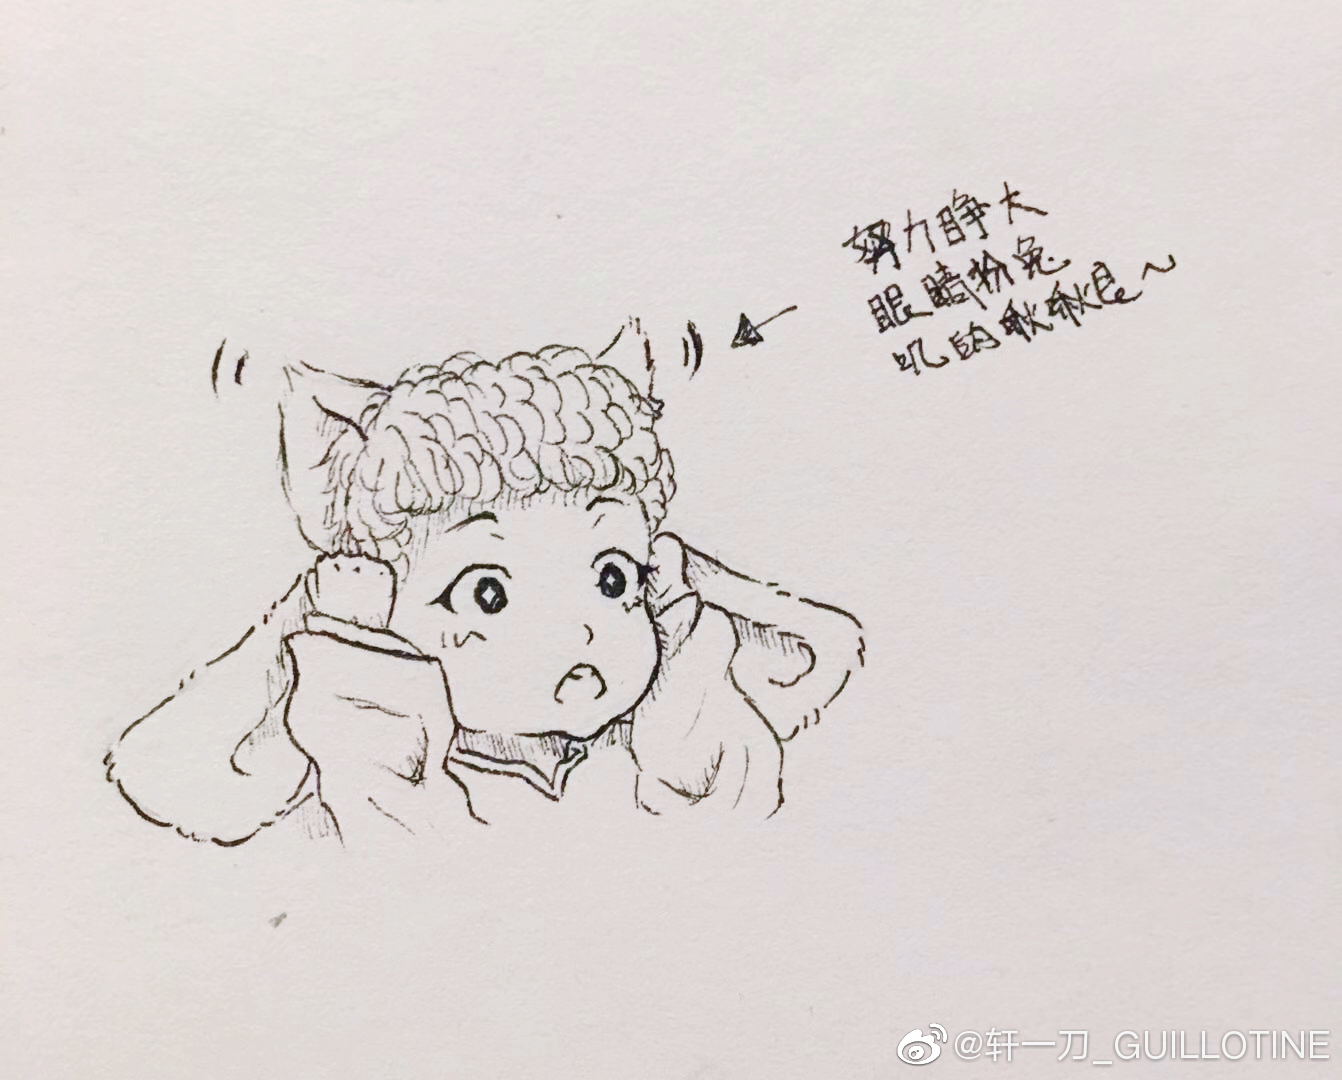 努力睁大
眼睛扮兔
叽的秋秋良~
@轩一刀_GUILLOTINE